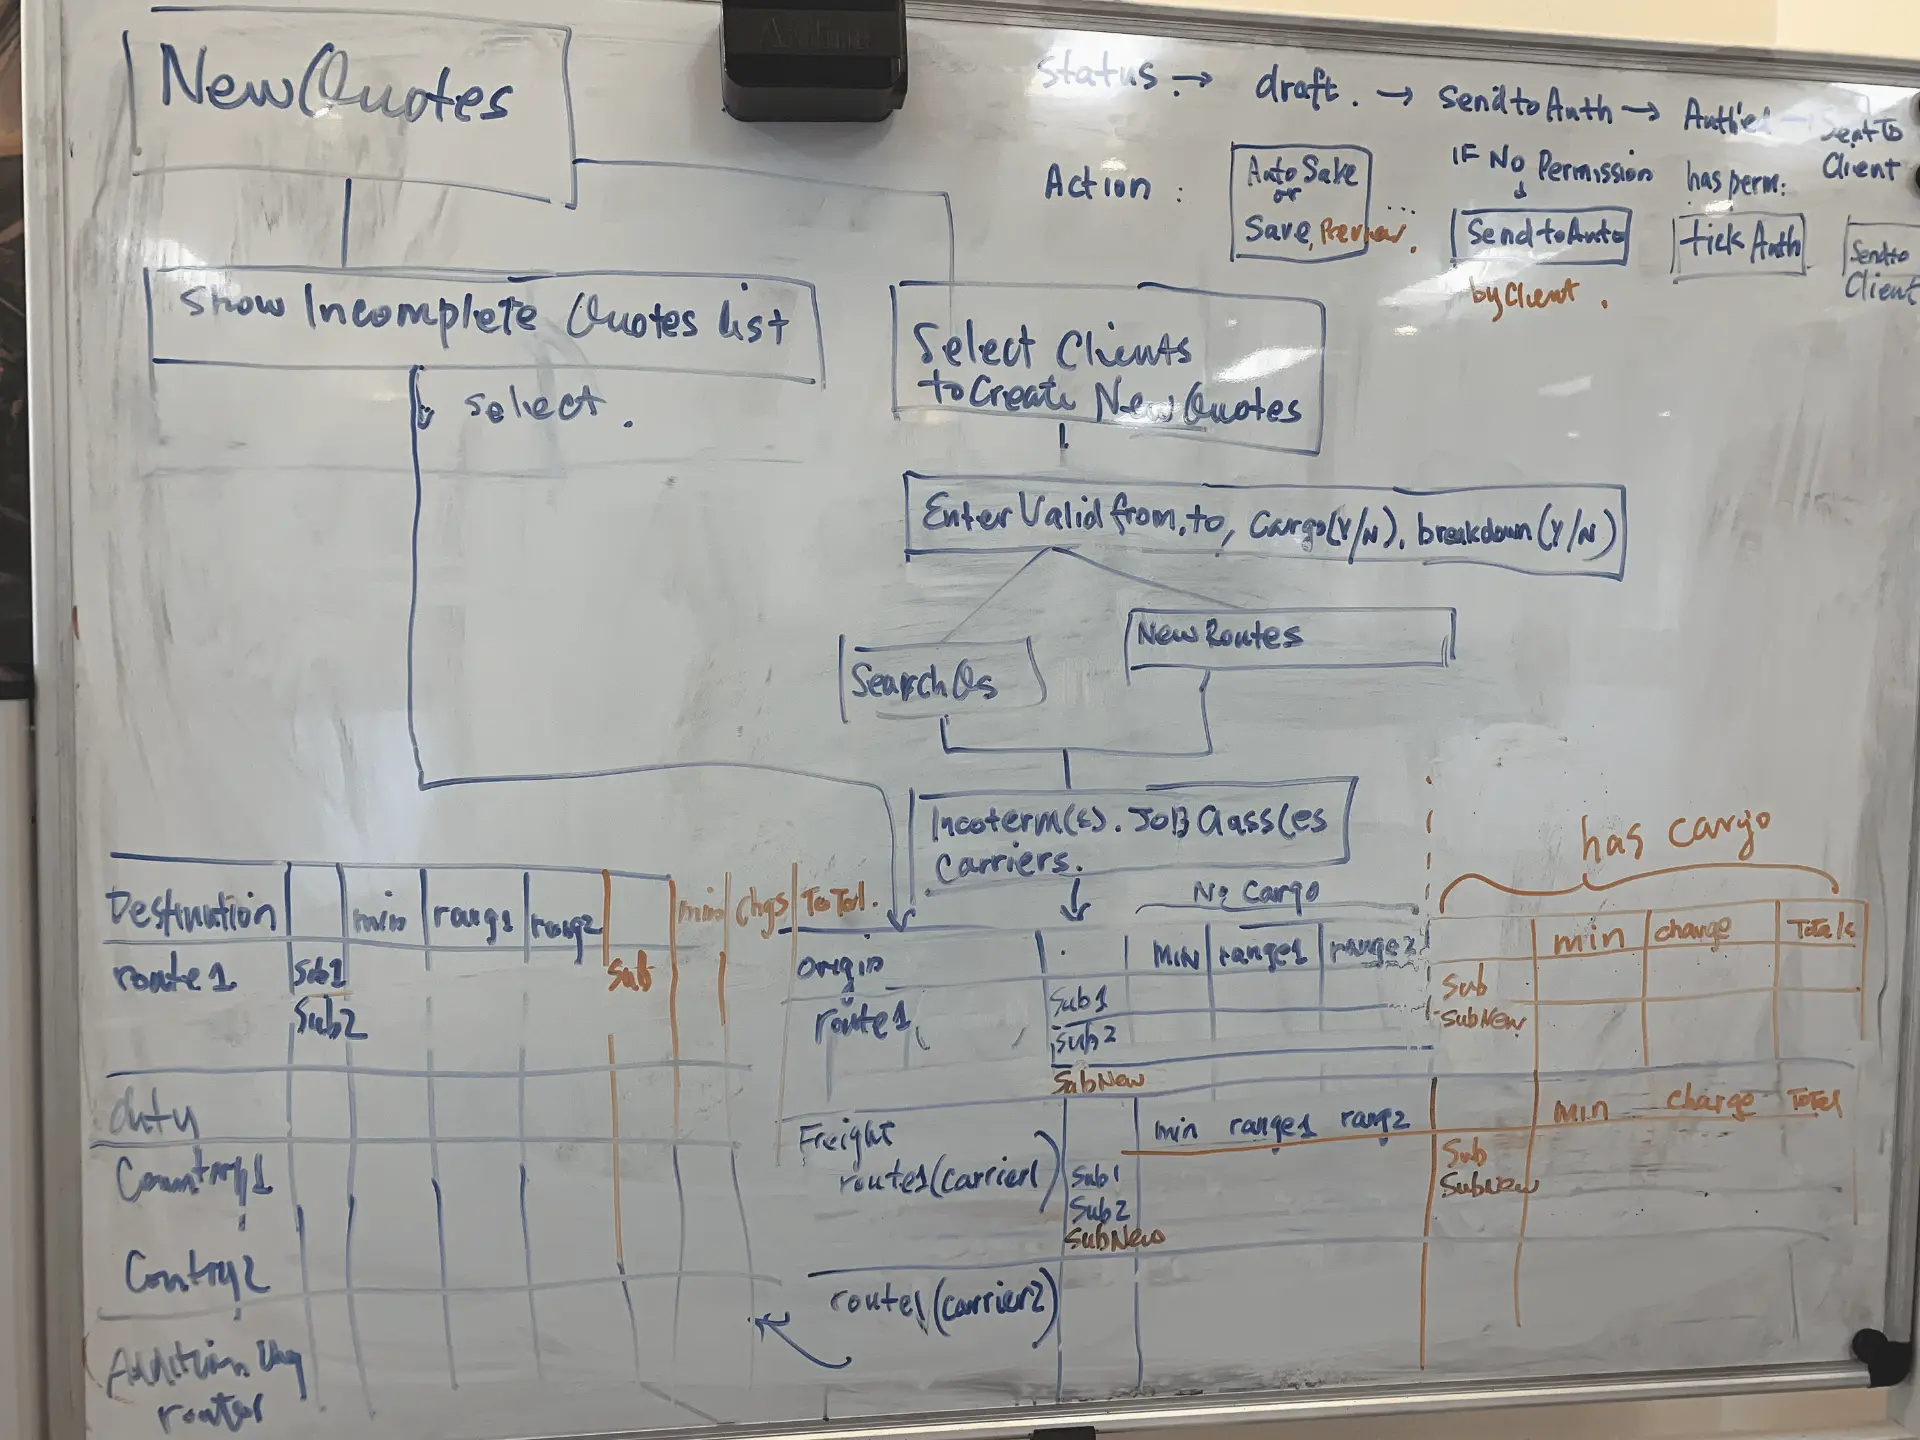 New Quotes
Status. → draft. → Send to Auth → Auth'ed → Sent To
Client
Action :
Auto Save
or
Save, Preview.
...
IF No Permission
Send to Auto
by Client.
has perm:
tick Auth
Send to
Client
Show Incomplete Quotes List
select.
Select Clients
to Create New Quotes
Enter Valid from, to, Cargo(Y/N), breakdown(Y/N)
Search Qs
New Routes
Incoterm(s). JOB Class(es
Carriers.
Destination min range1 range2 min chgs ToTal.
route1 Sub1 Sub
Sub2
duty
Country1
Contry2
router
No Cargo
Origin MIN range1 range2
route1 Sub1
Sub2
SubNew
Freight min range1 rang2
route1(carrier1) Sub1
Sub2
SubNew
route1(carrier2)
has cargo
min charge Totals
Sub
SubNew
min charge Total
Sub
SubNew